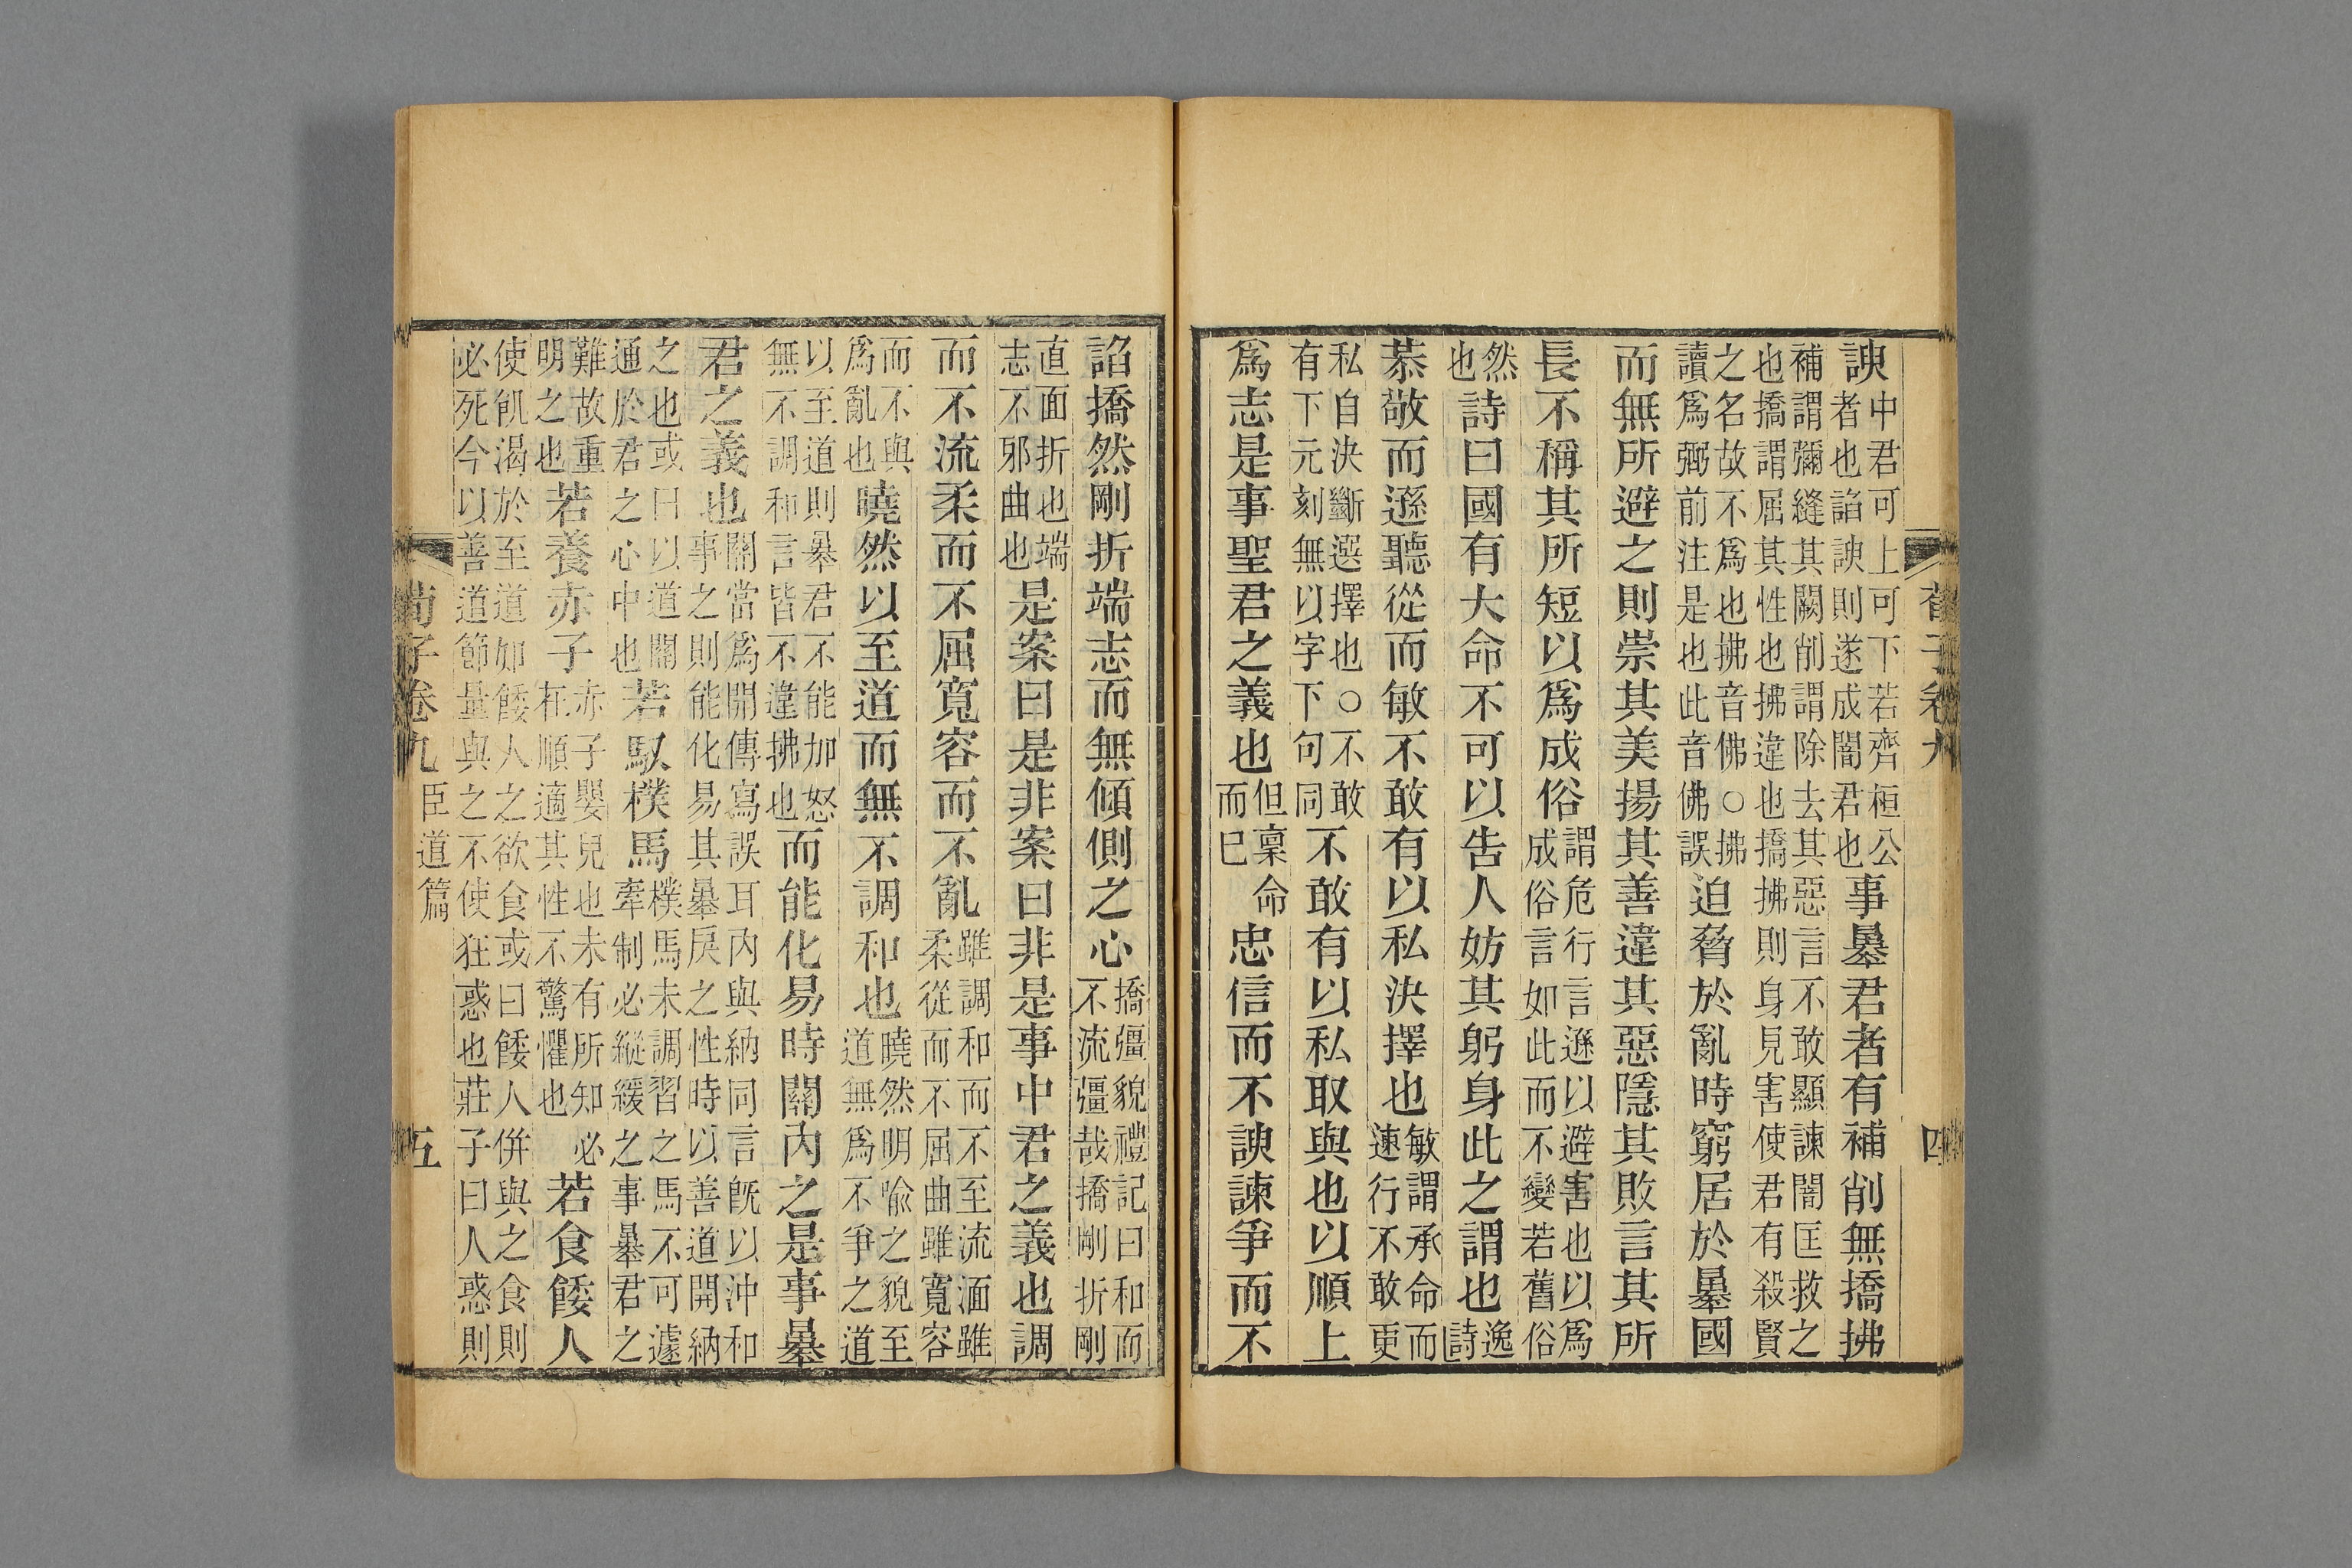 荀子卷九 四
諛中君可上可下若齊桓公者也諂諛則遂成闇君也事暴君者有補削無撟拂
補謂彌縫其闕削謂除去其惡言不敢顯諫闇匡救之也撟謂屈其性也拂違也撟拂則身見害使君有殺賢
之名故不爲也拂音佛○拂讀爲弼前注是也此音佛誤迫脅於亂時窮居於暴國
而無所避之則崇其美揚其善違其惡隱其敗言其所
長不稱其所短以爲成俗謂危行言遜以避害也以爲成俗言如此而不變若舊俗
然也詩曰國有大命不可以告人妨其躬身此之謂也逸詩
恭敬而遜聽從而敏不敢有以私決擇也敏謂承命而速行不敢更
私自決斷選擇也○不敢有下元刻無以字下句同不敢有以私取與也以順上
爲志是事聖君之義也但稟命而已忠信而不諛諫爭而不
諂撟然剛折端志而無傾側之心撟彊貌禮記曰和而不流彊哉撟剛折剛
直面折也端志不邪曲也是案曰是非案曰非是事中君之義也調
而不流柔而不屈寬容而不亂雖調和而不至流湎雖柔從而不屈曲雖寬容
而不與爲亂也曉然以至道而無不調和也曉然明喻之貌至道無爲不爭之道
以至道則暴君不能加怒無不調和言皆不違拂也而能化易時關內之是事暴
君之義也關當爲開傳寫誤耳內與納同言旣以沖和事之則能化易其暴戾之性時以善道開納
之也或曰以道關通於君之心中也若馭樸馬樸馬未調習之馬不可遽牽制必縱緩之事暴君之
難故重明之也若養赤子赤子嬰兒也未有所知必在順適其性不驚懼也若食餧人
使飢渴於至道如餧人之欲食或曰餧人併與之食則必死今以善道節量與之不使狂惑也莊子曰人惑則
荀子卷九 臣道篇 五